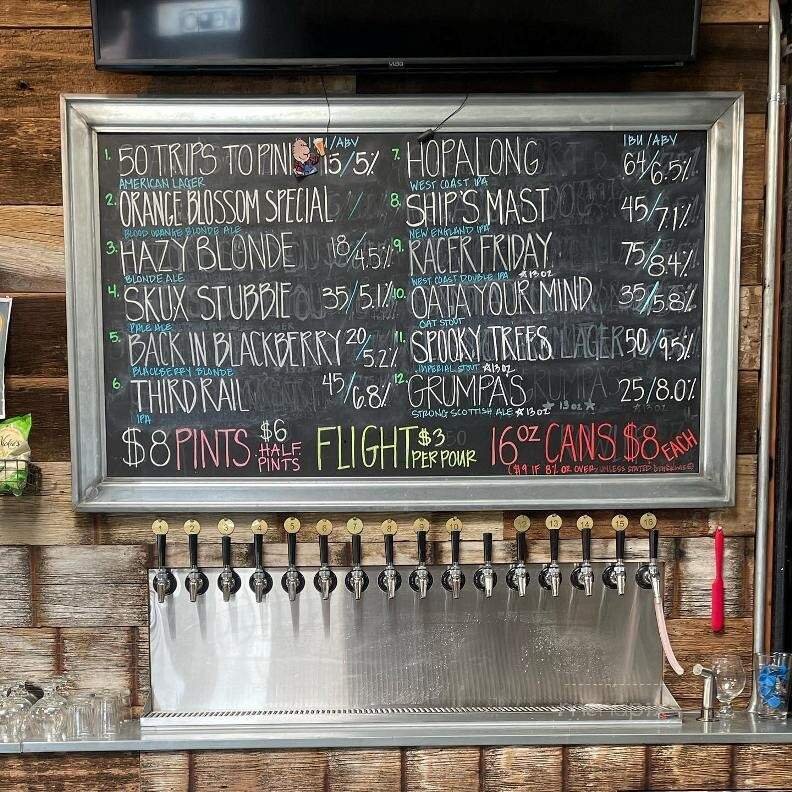 IBU/ABV
1. 50 TRIPS TO PIN 15/5%
AMERICAN LAGER
2. ORANGE BLOSSOM SPECIAL /
BLOOD ORANGE BLONDE ALE
3. HAZY BLONDE 18/4.5%
BLONDE ALE
4. SKUX STUBBIE 35/5.1%
PALE ALE
5. BACK IN BLACKBERRY 20/5.2%
BLACKBERRY BLONDE
6. THIRD RAIL 45/6.8%
IPA
IBU/ABV
7. HOPALONG 64/6.5%
WEST COAST IPA
8. SHIP'S MAST 45/7.1%
NEW ENGLAND IPA
9. RACER FRIDAY 75/8.4%
WEST COAST DOUBLE IPA ★13 OZ
10. OATA YOUR MIND 35/5.8%
OAT STOUT
11. SPOOKY TREES 50/9.5%
IMPERIAL STOUT ★13 OZ
12. GRUMPA'S 25/8.0%
STRONG SCOTTISH ALE ★13 OZ
$8 PINTS $6 HALF PINTS
FLIGHT $3 PER POUR
16 OZ CANS $8 EACH
($9 IF 8% OR OVER UNLESS STATED OTHERWISE)
1 2 3 4 5 6 7 8 9 10 12 13 14 15 16